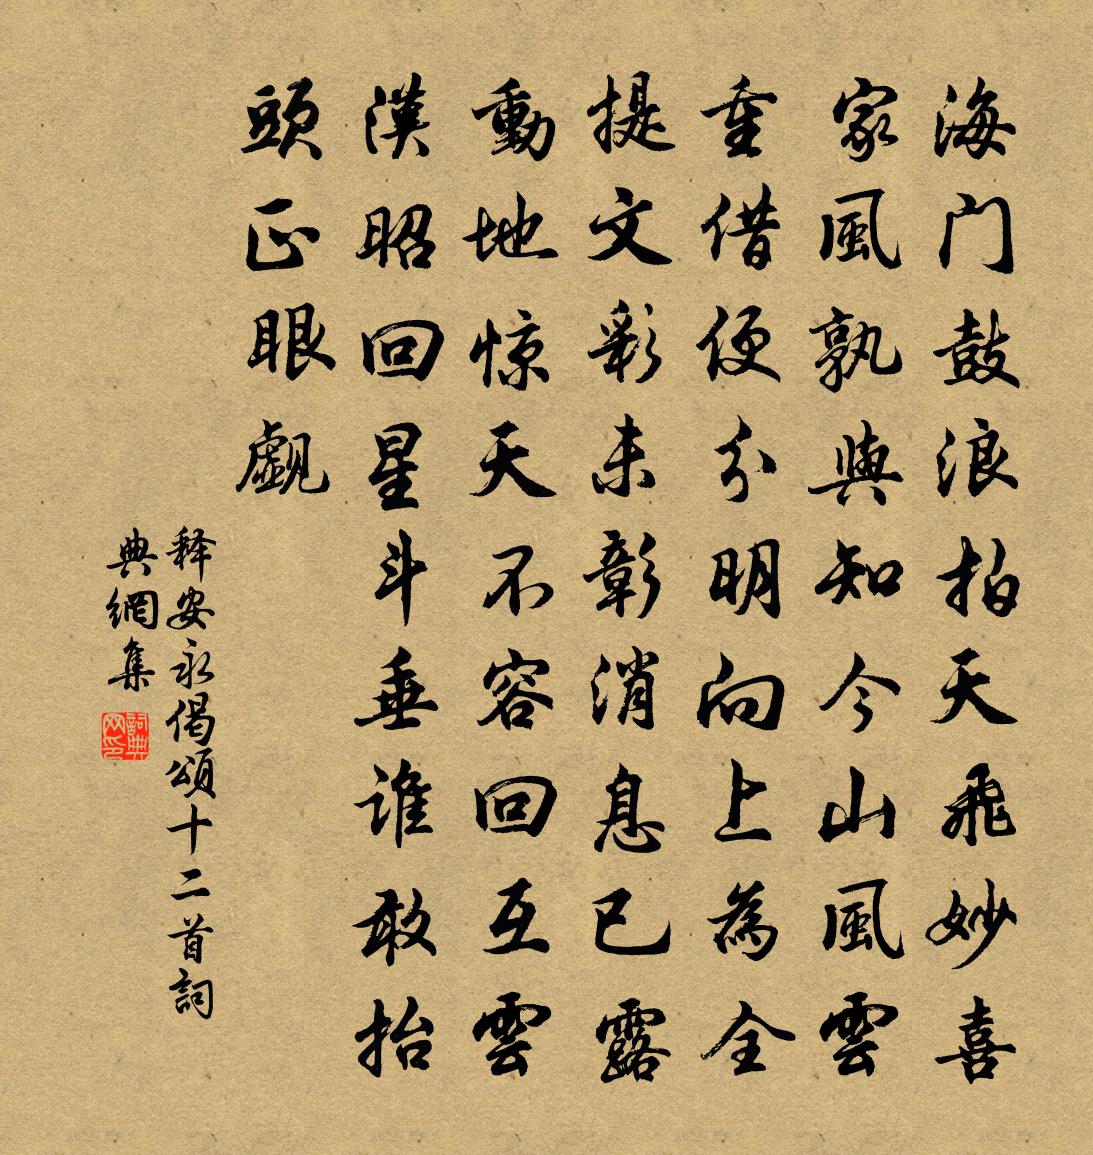 海门鼓浪拍天飛妙喜
家風孰與知今山風雲
重借便分明向上為全
提文彩未彰消息已露
動地惊天不容回互雲
漢昭回星斗垂谁敢抬
頭正眼覷
释安永偈頌十二首詞
典網集
詞典网印